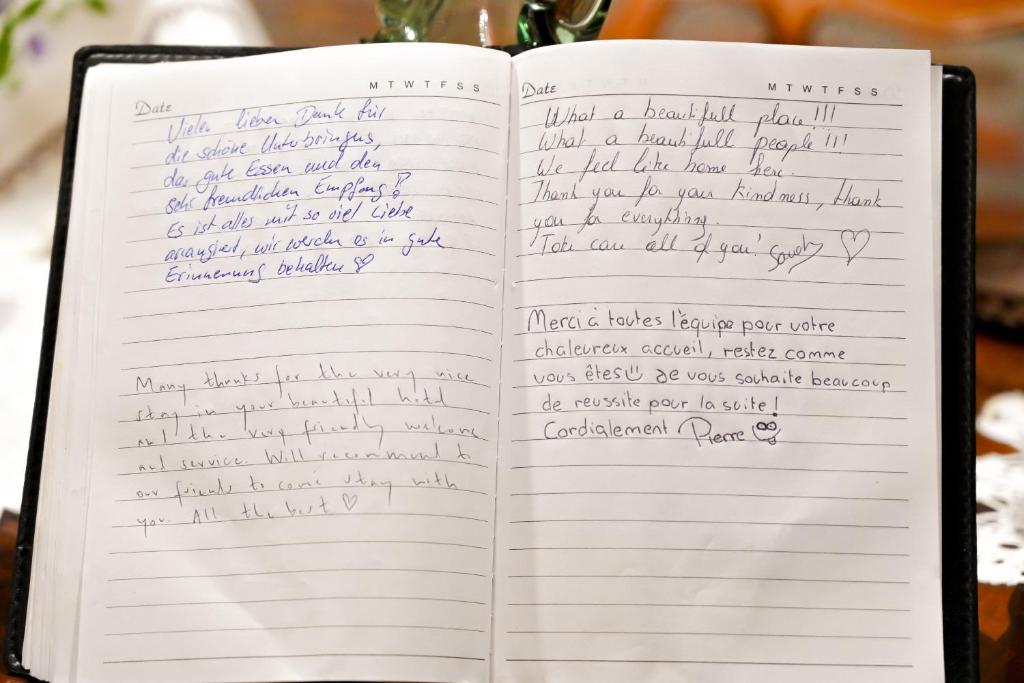 Date
M T W T F S S
Vielen lieben Dank für
die schöne Unterbringung,
das gute Essen und den
sehr freundlichen Empfang!
Es ist alles mit so viel Liebe
arrangiert, wir werden es in gute
Erinnerung behalten
Many thanks for the very nice
stay in your beautiful hotel
and the very friendly welcome
and service. Will recommend to
our friends to come stay with
you. All the best ♡
Date
M T W T F S S
What a beautifull place!!!
What a beautifull people!!!
We feel like home here.
Thank you for your kindness, thank
you for everything.
Take care all of you! ♡
Merci à toutes l'équipe pour votre
chaleureux accueil, restez comme
vous êtes Je vous souhaite beaucoup
de reussite pour la suite!
Cordialement Pierre